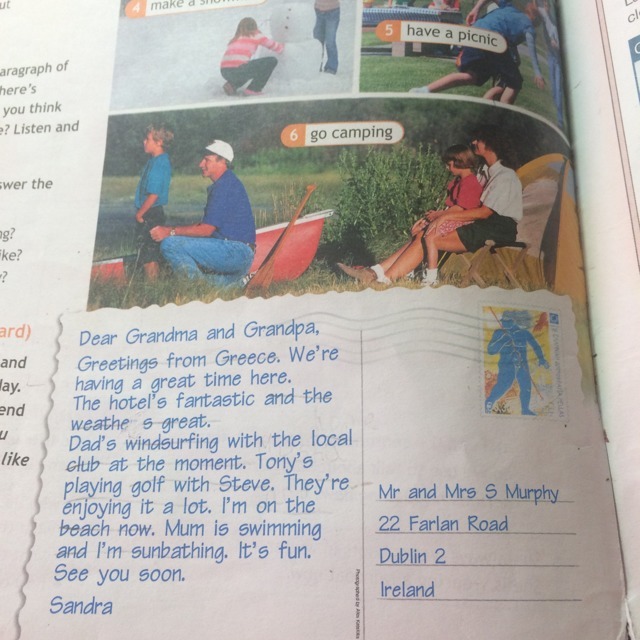 ut
4 make a snow
5 have a picnic
aragraph of
here's
you think
e? Listen and
swer the
ng?
ike?
?
6 go camping
ard)
and
lay.
end
u
like
Dear Grandma and Grandpa,
Greetings from Greece. We're
having a great time here.
The hotel's fantastic and the
weathe s great.
Dad's windsurfing with the local
club at the moment. Tony's
playing golf with Steve. They're
enjoying it a lot. I'm on the
beach now. Mum is swimming
and I'm sunbathing. It's fun.
See you soon.
Sandra
Mr and Mrs S Murphy
22 Farlan Road
Dublin 2
Ireland